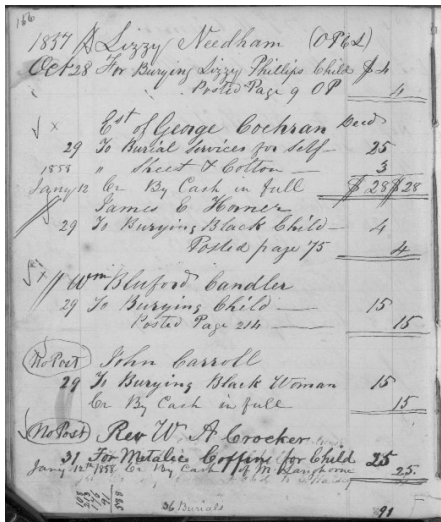 166
1857 Lizzy Needham (OP&L)
Oct 28 For Burying Lizzy Phillips Child $4
Posted Page 9 OP 4
Est of George Cochran Decd
29 To Burial Services for Self 25
1858 " Sheet & Cotton 3
Jany 12 Cr By Cash in full $28 $28
James E Horner
29 To Burying Black Child 4
Posted page 75 4
Wm Bluford Candler
29 To Burying Child 15
Posted Page 214 15
No Post John Carroll
29 To Burying Black Woman 15
Cr By Cash in full 15
No Post Rev W A Crocker
31 For Metalic Coffin for Child 25
Jany 12th 1858 Cr By Cash of M Langhorne 25
36 Burials 91